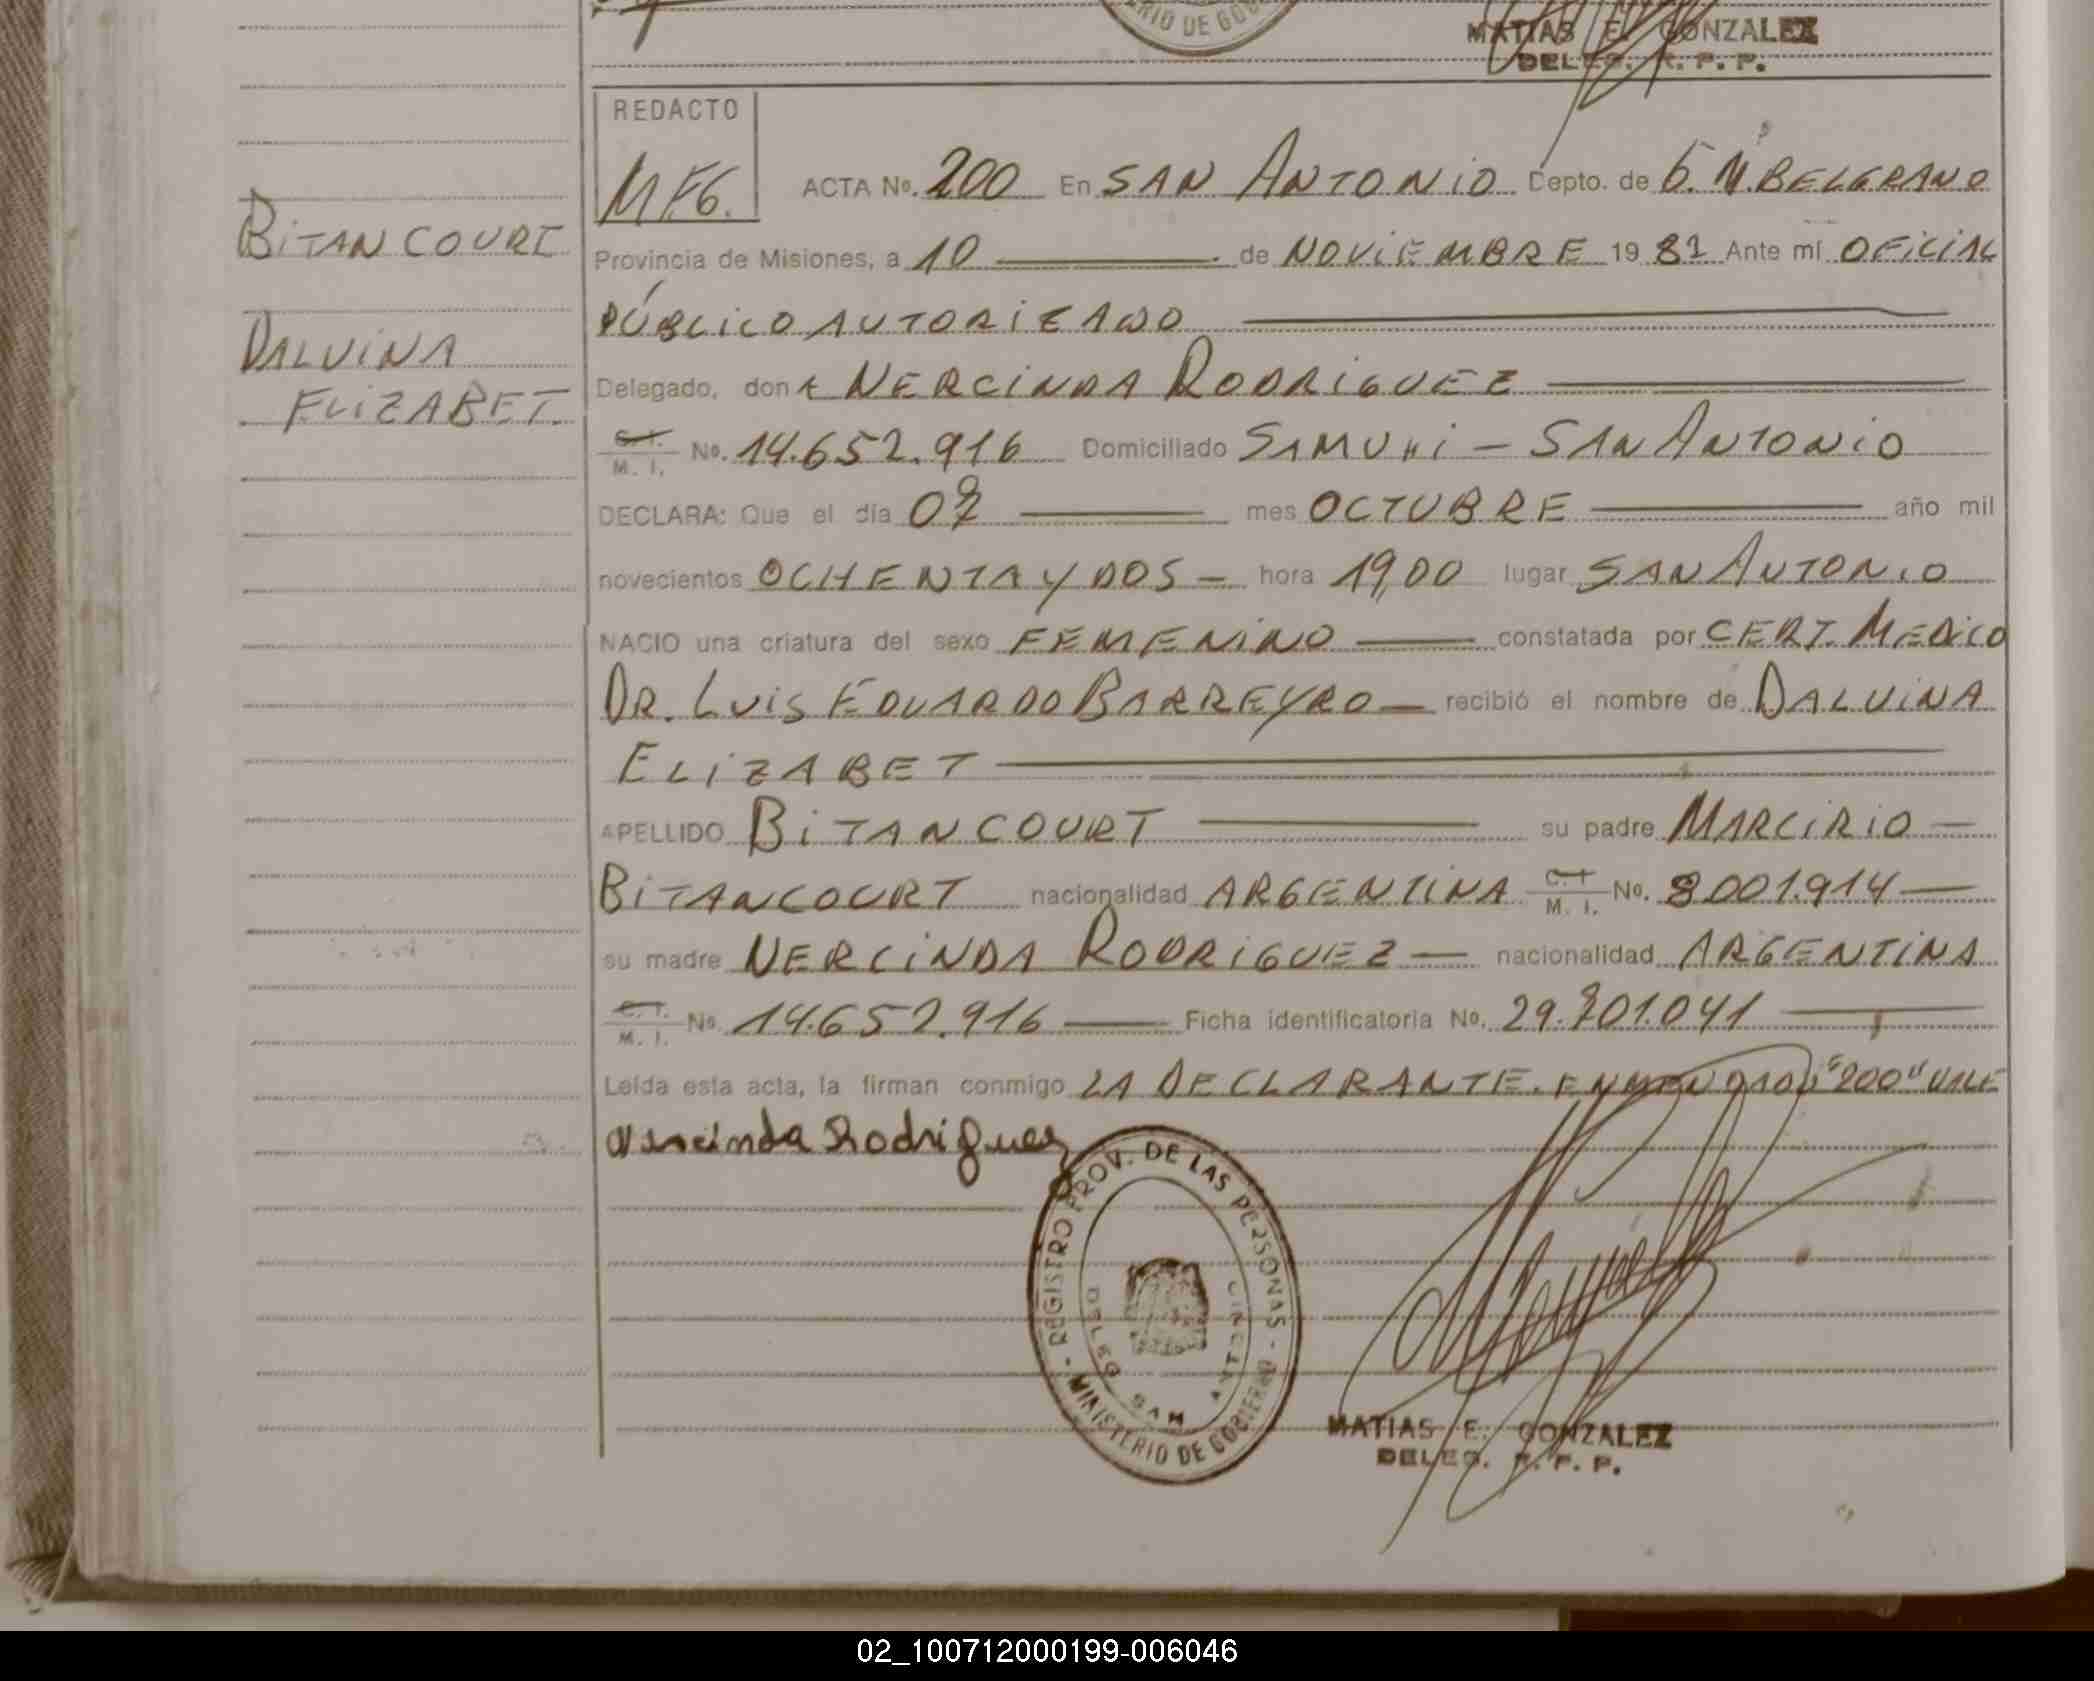 RIO DE GOB
MATIAS E. GONZALEZ
DELEG. R. P. P.
REDACTO
MEG.
ACTA No. 200 En SAN ANTONIO Depto. de G. M. BELGRANO
BITANCOURT
Provincia de Misiones, a 10 de NOVIEMBRE 1982 Ante mí OFICIAL
PÚBLICO AUTORIZADO
DALVINA
ELIZABET.
Delegado, don A NERCINDA RODRIGUEZ
C. I. M. I. No. 14.652.916 Domiciliado SAMUHI - SAN ANTONIO
DECLARA: Que el día 07 mes OCTUBRE año mil
novecientos OCHENTA Y DOS - hora 19,00 lugar SAN ANTONIO
NACIO una criatura del sexo FEMENINO constatada por CERT. MEDICO
DR. LUIS EDUARDO BARREYRO - recibió el nombre de DALVINA
ELIZABET
APELLIDO BITANCOURT su padre MARCIRIO -
BITANCOURT nacionalidad ARGENTINA C. I. M. I. No. 8001.914 -
su madre NERCINDA RODRIGUEZ - nacionalidad ARGENTINA
C. I. M. I. No. 14.652.916 - Ficha identificatoria No. 29.701.041
Leída esta acta, la firman conmigo LA DECLARANTE. ENMENDADO "200" VALE
Nercinda Rodriguez
- REGISTRO PROV. DE LAS PERSONAS -
MINISTERIO DE GOBIERNO
DELEG. SAN ANTONIO
MATIAS E. GONZALEZ
DELEG. R. P. P.
02_100712000199-006046